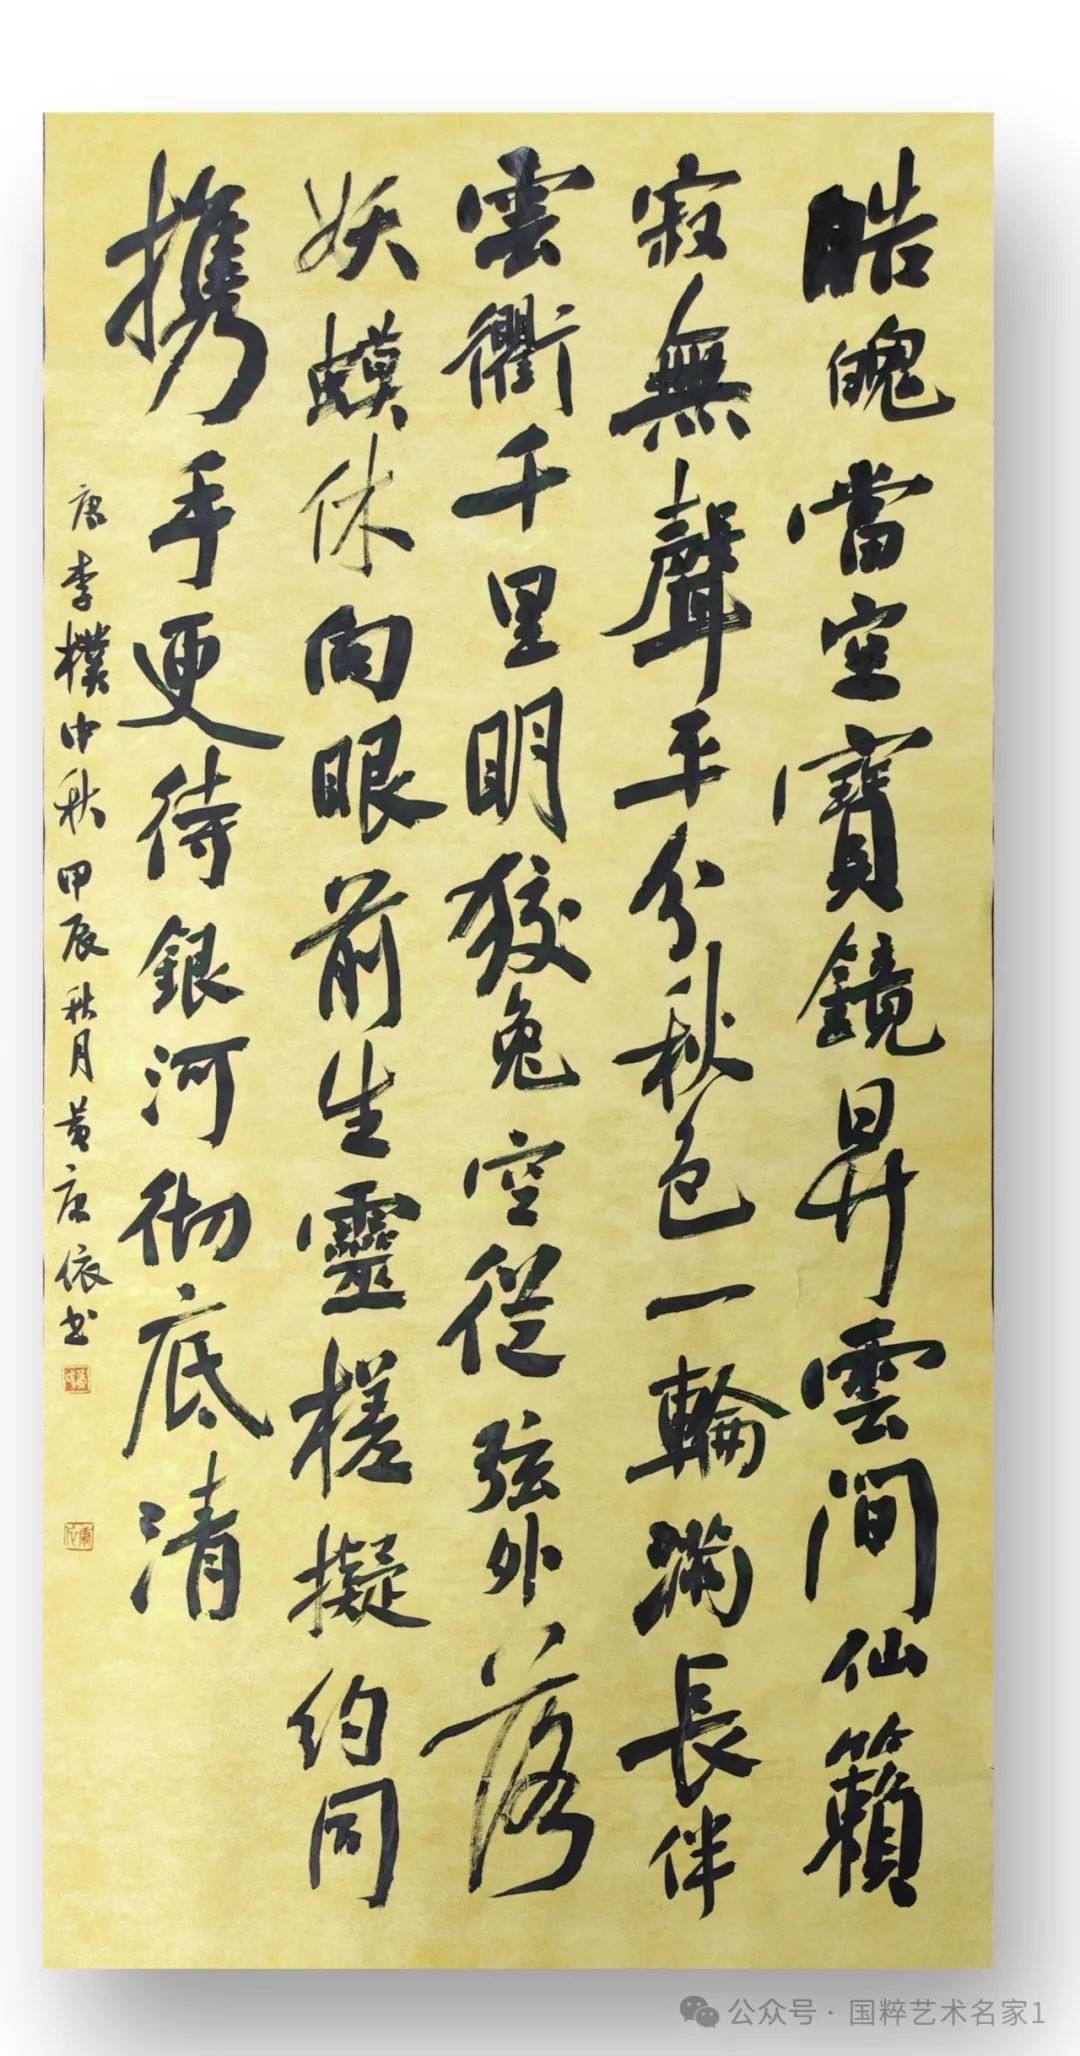 皓魄當空寶鏡昇雲間仙籟
寂無聲平分秋色一輪滿長伴
雲衢千里明狡兔空從弦外落
妖蟆休向眼前生靈槎擬約同
携手更待銀河彻底清
唐李樸中秋甲辰秋月黄康依书
公众号·国粹艺术名家1